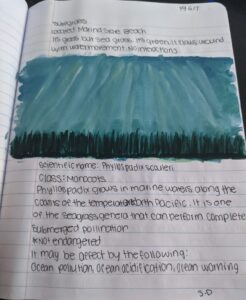 surfgrass
Located Marina State Beach
It's grass but sea grass. It's green, it flows around
with water movement. No interactions.
Scientific name: Phyllospadix scouleri
Class: Monocots
Phyllospadix grows in marine waters along the
coasts of the temperate North Pacific. It is one
of the seagrass genera that can perform complete
submerged pollination
Not endangered
It may be affect by the following:
Ocean pollution, ocean acidification, ocean warming
S-D